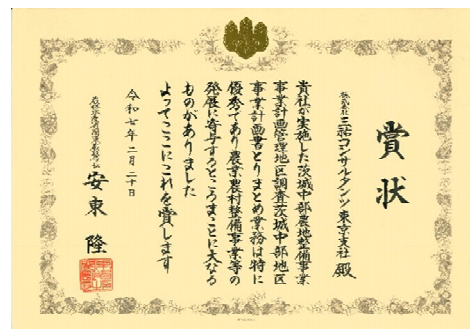 賞状
株式会社三祐コンサルタンツ東京支社 殿
貴社が実施した茨城中部農地整備事業
事業計画管理地区調査茨城中部地区
事業計画書とりまとめ業務は特に
優秀であり農業農村整備事業等の
発展に寄与するところまことに大なる
ものがありました
よってここにこれを賞します
令和七年二月二十日
安東 隆